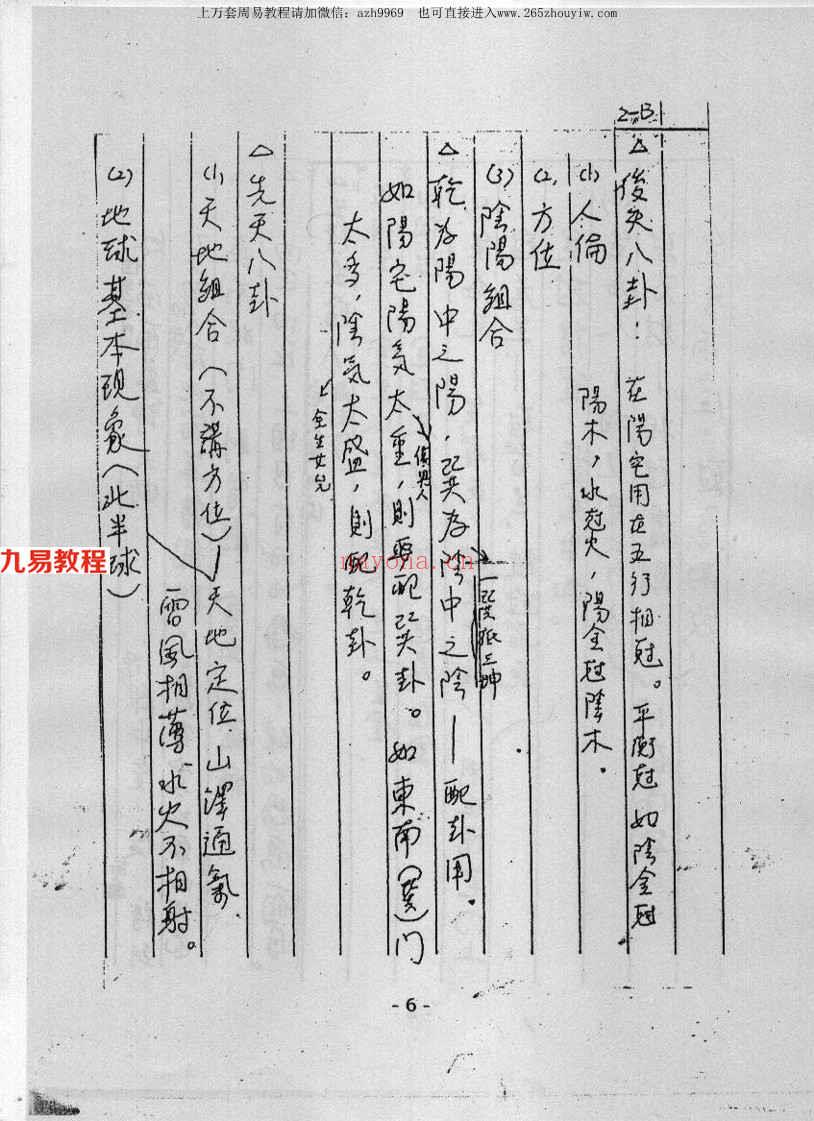 上万套周易教程请加微信：azh9969 也可直接进入www.265zhouyiw.com
2-B
△後天八卦：在陽宅用在五行相尅。平衡尅如陰金尅
陽木，水尅火，陽金尅陰木。
(1)人倫
(2)方位
(3)陰陽組合
△乾為陽中之陽，巽為陰中之陰—配卦用。
如陽宅陽氣太重，則要配巽卦。如東南(巽)门
太多，陰氣太盛，則配乾卦。
全生女兒
△先天八卦
(1)天地組合(不講方位)—天地定位，山澤通氣，
雷風相薄，水火不相射。
(2)地球基本現象(北半球)
九易教程
nayona.cn
- 6 -